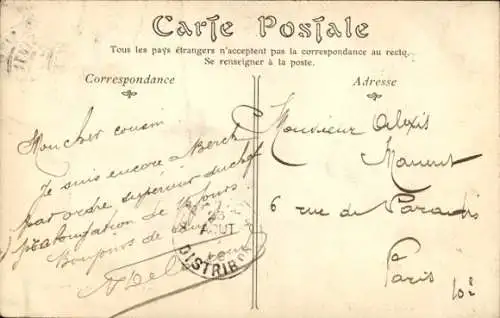 Carte Postale
Tous les pays étrangers n'acceptent pas la correspondance au recto.
Se renseigner à la poste.
Correspondance
Adresse
Mon cher cousin
Je suis encore à Berck
par ordre supérieur du chef
prolongation de 15 jours
Bonjours de
Monsieur Alexis
6 rue de Paradis
Paris 10e
AOUT
DISTRIB